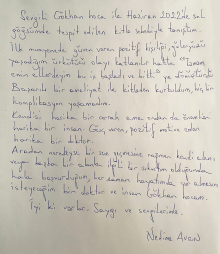 Sevgili Gökhan hoca ile Haziran 2022'de sol
göğsümde tespit edilen kitle sebebiyle tanıştım.
İlk muayenede güven veren pozitif kişiliği, güleryüzü
yaşadığım ürkütücü olayı katlanılır hale "Tamam
emin ellerdeyim bu iş başladı ve bitti."
Başarılı bir ameliyat ile kitleden kurtuldum, hiç bir
komplikasyon yaşamadım.
Kendisi harika bir cerrah ama ondan da önemlisi
harika bir insan. Güç veren, pozitif, motive eden
harika bir doktor.
Aradan neredeyse bir sene geçmesine rağmen kendi alanı
veya başka bir alanla ilgili bir sıkıntım olduğunda
hala başvurduğum, her zaman hayatımda yer almasını
isteyeceğim bir doktor ve insan Gökhan hocam.
İyi ki varlar. Saygı ve sevgilerimle.
Nedime